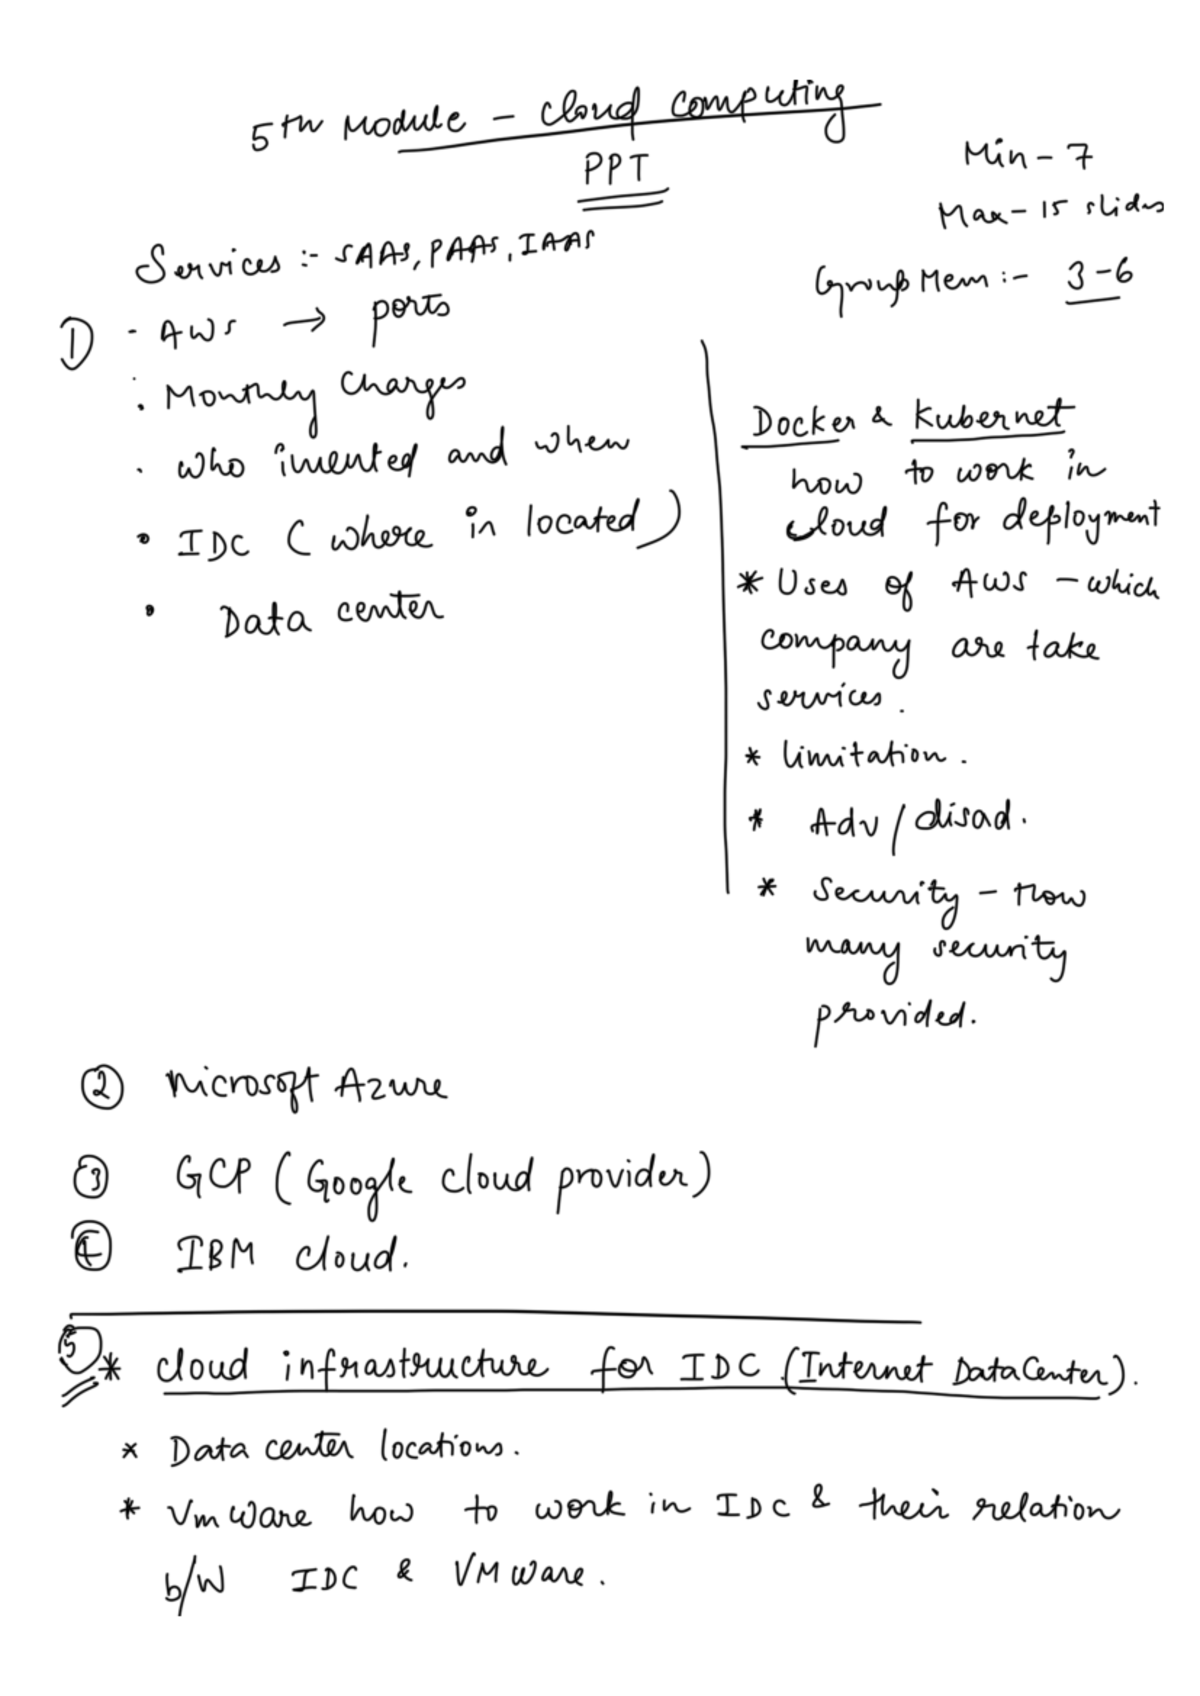 5th Module - cloud computing
PPT
Min - 7
Max - 15 slides
Group Mem :- 3-6
Services :- SAAS, PAAS, IAAS
① - AWS → ports
: Monthly Charges
· who invented and when
• IDC (where in located)
• Data center
Docker & Kubernet
how to work in
cloud for deployment
* Uses of AWS - which
company are take
services.
* limitation.
* Adv/disad.
* Security - How
many security
provided.
② Microsoft Azure
③ GCP (Google cloud provider)
④ IBM cloud.
⑤ * cloud infrastructure for IDC (Internet DataCenter).
* Data center locations.
* VmWare how to work in IDC & their relation
b/W IDC & VMware.